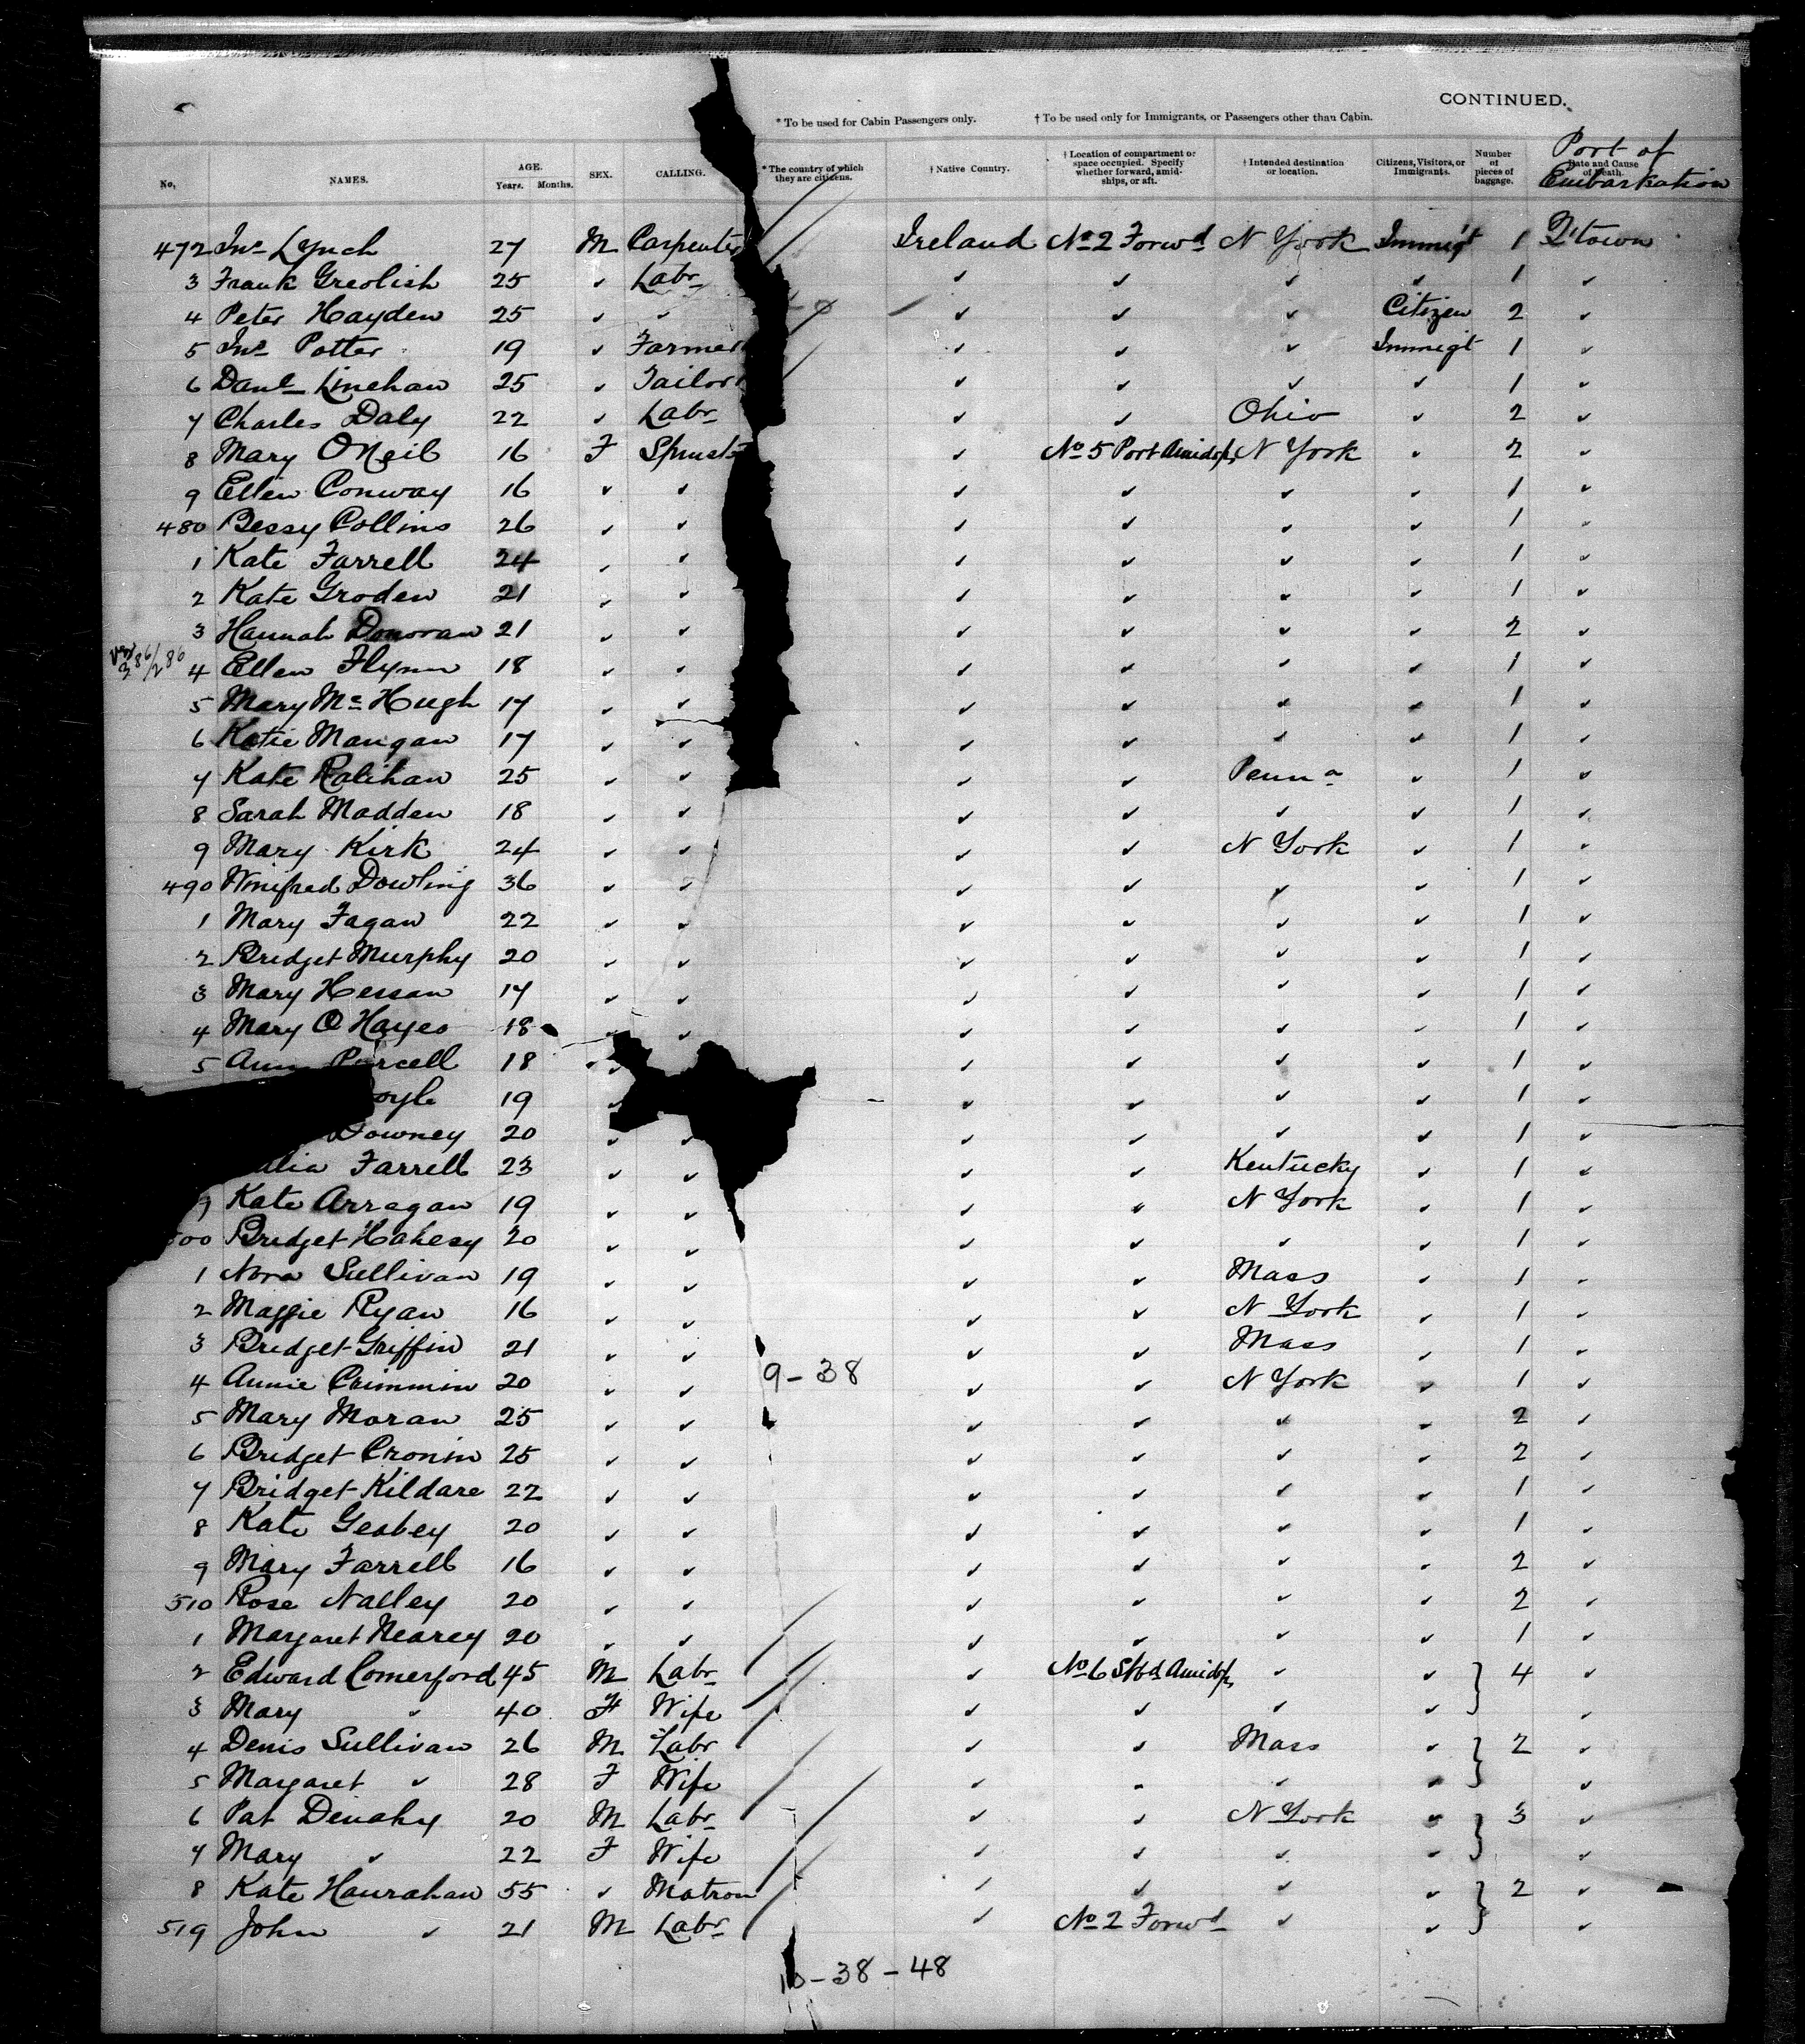 CONTINUED.
* To be used for Cabin Passengers only. † To be used only for Immigrants, or Passengers other than Cabin.
No. NAMES. AGE. Years. Months. SEX. CALLING. * The country of which they are citizens. † Native Country. † Location of compartment or space occupied. Specify whether forward, amidships, or aft. † Intended destination or location. Citizens, Visitors, or Immigrants. Number of pieces of baggage. Date and Cause of Death. Port of Embarkation
472 Jno Lynch 27 M Carpenter Ireland No 2 Forwd N York Immigt 1 Q'town
3 Frank Greolish 25 ✓ Labr ✓ ✓ ✓ ✓ 1 ✓
4 Peter Hayden 25 ✓ ✓ ✓ ✓ ✓ Citizen 2 ✓
5 Jno Potter 19 ✓ Farmer ✓ ✓ ✓ Immigt 1 ✓
6 Danl Linehan 25 ✓ Tailor ✓ ✓ ✓ ✓ 1 ✓
7 Charles Daly 22 ✓ Labr ✓ ✓ Ohio ✓ 2 ✓
8 Mary O'Neil 16 F Spinst ✓ No 5 Port Amidsps N York ✓ 2 ✓
9 Ellen Conway 16 ✓ ✓ ✓ ✓ ✓ ✓ 1 ✓
480 Bessy Collins 26 ✓ ✓ ✓ ✓ ✓ ✓ 1 ✓
1 Kate Farrell 24 ✓ ✓ ✓ ✓ ✓ ✓ 1 ✓
2 Kate Groden 21 ✓ ✓ ✓ ✓ ✓ ✓ 1 ✓
3 Hannah Donovan 21 ✓ ✓ ✓ ✓ ✓ ✓ 2 ✓
4 Ellen Flynn 18 ✓ ✓ ✓ ✓ ✓ ✓ 1 ✓
5 Mary Mc Hugh 17 ✓ ✓ ✓ ✓ ✓ ✓ 1 ✓
6 Katie Mangan 17 ✓ ✓ ✓ ✓ ✓ ✓ 1 ✓
7 Kate Ralihan 25 ✓ ✓ ✓ ✓ Penna ✓ 1 ✓
8 Sarah Madden 18 ✓ ✓ ✓ ✓ ✓ ✓ 1 ✓
9 Mary Kirk 24 ✓ ✓ ✓ ✓ N York ✓ 1 ✓
490 Winifred Dowling 36 ✓ ✓ ✓ ✓ ✓ ✓ 1 ✓
1 Mary Fagan 22 ✓ ✓ ✓ ✓ ✓ ✓ 1 ✓
2 Bridget Murphy 20 ✓ ✓ ✓ ✓ ✓ ✓ 1 ✓
3 Mary Hessan 17 ✓ ✓ ✓ ✓ ✓ ✓ 1 ✓
4 Mary O Hayes 18 ✓ ✓ ✓ ✓ ✓ ✓ 1 ✓
5 Ann Purcell 18 ✓ ✓ ✓ ✓ ✓ 1 ✓
oyle 19 ✓ ✓ ✓ ✓ ✓ 1 ✓
Downey 20 ✓ ✓ ✓ ✓ ✓ ✓ 1 ✓
ulia Farrell 23 ✓ ✓ ✓ ✓ Kentucky ✓ 1 ✓
9 Kate Arragan 19 ✓ ✓ ✓ ✓ N York ✓ 1 ✓
500 Bridget Hahesy 20 ✓ ✓ ✓ ✓ ✓ ✓ 1 ✓
1 Nora Sullivan 19 ✓ ✓ ✓ ✓ Mass ✓ 1 ✓
2 Maggie Ryan 16 ✓ ✓ ✓ ✓ N York ✓ 1 ✓
3 Bridget Griffin 21 ✓ ✓ ✓ ✓ Mass ✓ 1 ✓
4 Annie Crimmin 20 ✓ ✓ 9-38 ✓ ✓ N York ✓ 1 ✓
5 Mary Moran 25 ✓ ✓ ✓ ✓ ✓ ✓ 2 ✓
6 Bridget Cronin 25 ✓ ✓ ✓ ✓ ✓ ✓ 2 ✓
7 Bridget Kildare 22 ✓ ✓ ✓ ✓ ✓ ✓ 1 ✓
8 Kate Geabey 20 ✓ ✓ ✓ ✓ ✓ ✓ 1 ✓
9 Mary Farrell 16 ✓ ✓ ✓ ✓ ✓ ✓ 2 ✓
510 Rose Nalley 20 ✓ ✓ ✓ ✓ ✓ ✓ 2 ✓
1 Margaret Nearey 20 ✓ ✓ ✓ ✓ ✓ ✓ 1 ✓
2 Edward Comerford 45 M Labr ✓ No 6 Stbd Amidsps ✓ ✓ } 4 ✓
3 Mary ✓ 40 F Wife ✓ ✓ ✓ ✓ ✓
4 Denis Sullivan 26 M Labr ✓ ✓ Mass ✓ } 2 ✓
5 Margaret ✓ 28 F Wife ✓ ✓ ✓ ✓ ✓
6 Pat Denahy 20 M Labr ✓ ✓ N York ✓ } 3 ✓
7 Mary ✓ 22 F Wife ✓ ✓ ✓ ✓ ✓
8 Kate Hanrahan 55 ✓ Matron ✓ ✓ ✓ ✓ } 2 ✓
519 John ✓ 21 M Labr ✓ No 2 Forwd ✓ ✓ ✓
10-38-48